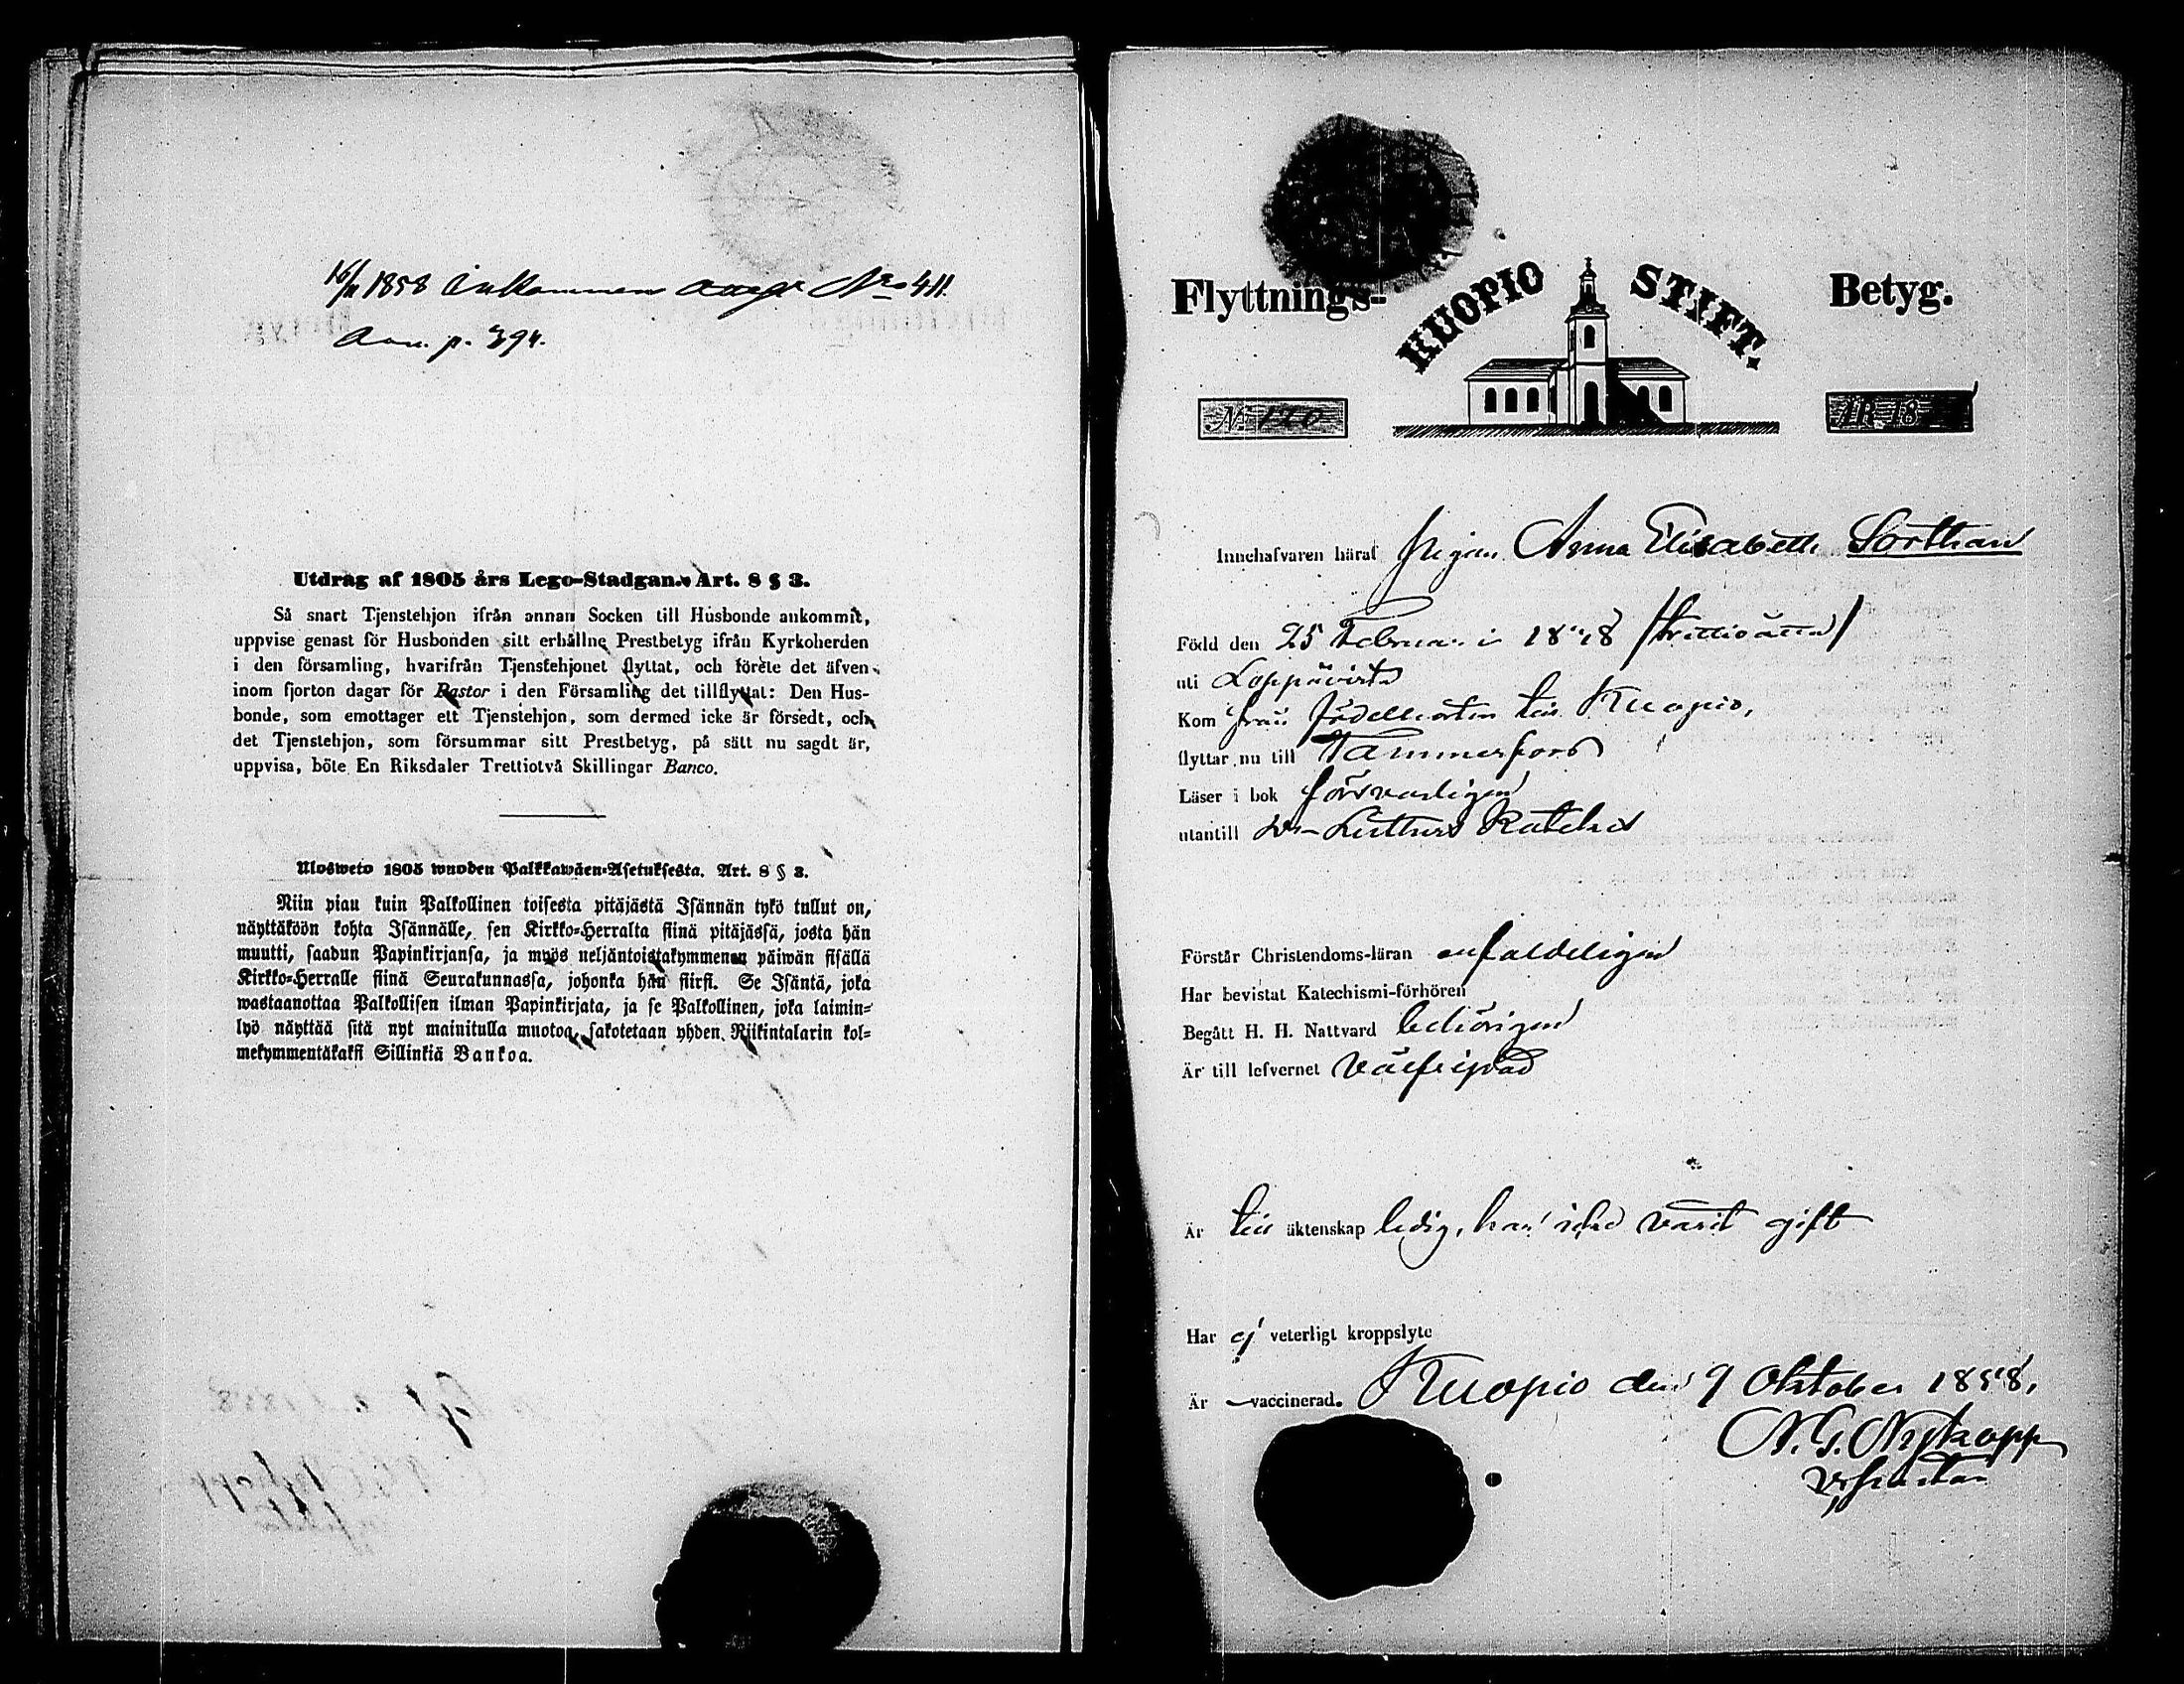 16/11 1858 Inkommen attest No 411.
Ann. p. 394.
Utdrag af 1805 års Lego-Stadgan. Art. 8 § 3.
Så snart Tjenstehjon ifrån annan Socken till Husbonde ankommit,
uppvise genast för Husbonden sitt erhållne Prestbetyg ifrån Kyrkoherden
i den församling, hvarifrån Tjenstehjonet flyttat, och förete det äfven
inom fjorton dagar för Pastor i den Församling det tillflyttat: Den Hus-
bonde, som emottager ett Tjenstehjon, som dermed icke är försedt, och
det Tjenstehjon, som försummar sitt Prestbetyg, på sätt nu sagdt är,
uppvisa, böte En Riksdaler Trettiotvå Skillingar Banco.
Ulosweto 1805 wuoden Palkkawäen-Asetuksesta. Art. 8 § 3.
Niin piau kuin Palkollinen toisesta pitäjästä Isännän tykö tullut on,
näyttäköön kohta Isännälle, sen Kirkko-Herralta siinä pitäjässä, josta hän
muutti, saadun Papinkirjansa, ja myös neljäntoistakymmenen päiwän sisällä
Kirkko-Herralle siinä Seurakunnassa, johonka hän siirsi. Se Isäntä, joka
wastaanottaa Palkollisen ilman Papinkirjata, ja se Palkollinen, joka laimin-
lyö näyttää sitä nyt mainitulla muotoa, sakotetaan yhden Riikintalarin kol-
mekymmentäkaksi Sillinkiä Bankoa.
Flyttnings- KUOPIO STIFT. Betyg.
No 120 ÅR 18
Innehafvaren häraf pigan Anna Elisabeth Sorthan
Född den 25 Februari 1838 /trettioåtta/
uti Leppävirta
Kom från födelseorten till Kuopio,
flyttar nu till Tammerfors
Läser i bok försvarligen
utantill Luthers Kateches
Förstår Christendoms-läran enfaldeligen
Har bevistat Katechismi-förhören
Begått H. H. Nattvard behörigen
Är till lefvernet välfrejdad
Är till äktenskap ledig, har icke varit gift
Har ej veterligt kroppslyte
Är vaccinerad. Kuopio den 9 Oktober 1858.
N. G. Nykopp
v. pastor